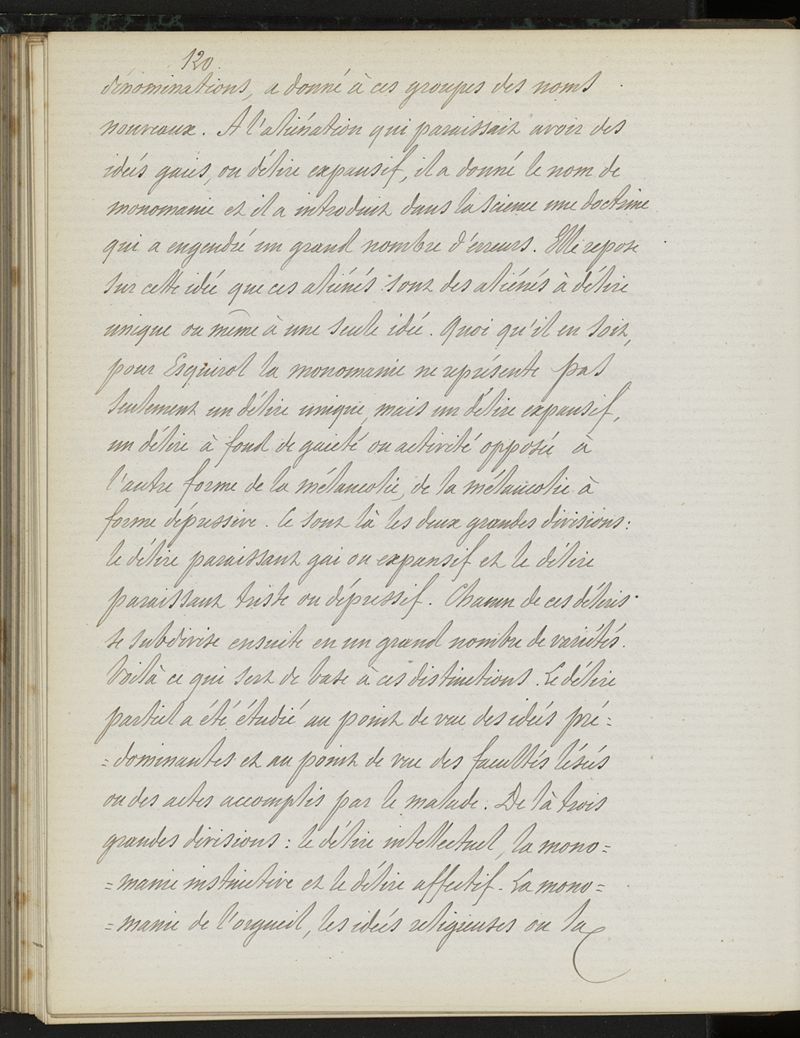 120.
dénominations, a donné à ces groupes des noms
nouveaux. A l'aliénation qui paraissait avoir des
idées gaies, ou délire expansif, il a donné le nom de
monomanie et il a introduit dans la science une doctrine
qui a engendré un grand nombre d'erreurs. Elle repose
sur cette idée que ces aliénés sont des aliénés à délire
unique ou même à une seule idée. Quoi qu'il en soit,
pour Esquirol la monomanie ne représente pas
seulement un délire unique mais un délire expansif,
un délire à fond de gaieté ou activité opposée à
l'autre forme de la mélancolie, de la mélancolie à
forme dépressive. Ce sont là les deux grandes divisions:
le délire paraissant gai ou expansif et le délire
paraissant triste ou dépressif. Chacun de ces délires
se subdivise ensuite en un grand nombre de variétés.
Voilà ce qui sert de base à ces distinctions. Le délire
partiel a été étudié au point de vue des idées pré=
=dominantes et au point de vue des facultés lésées
ou des actes accomplis par le malade. De là trois
grandes divisions: le délire intellectuel, la mono=
=manie instinctive et le délire affectif. La mono=
=manie de l'orgueil, les idées religieuses ou la